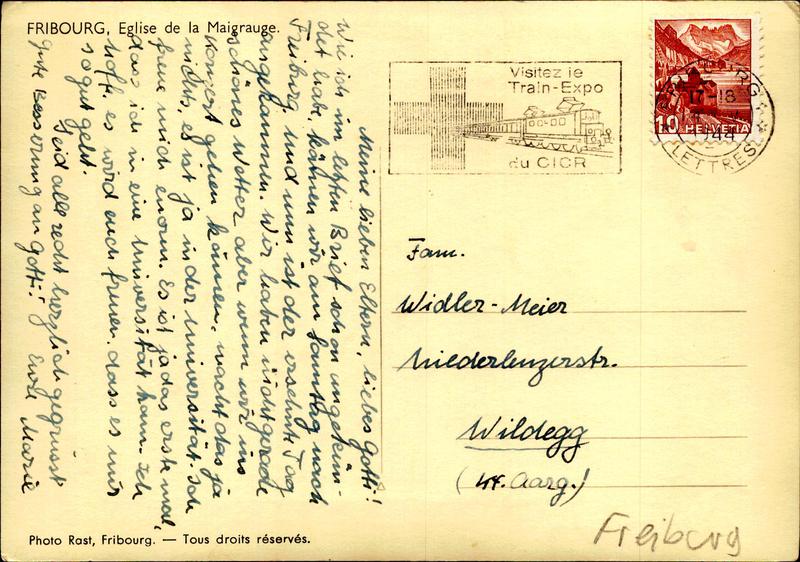 FRIBOURG, Eglise de la Maigrauge.
Meine lieben Eltern, liebes Gotti!
Wie ich im letzten Brief schon angekün-
det habe, können wir am Samstag nach
Freiburg. Und nun ist der ersehnte Tag
angekommen. Wir haben nicht gerade
schönes Wetter aber wenn wir ins
Konzert gehen können, macht das ja
nichts, es ist ja in der Universität. Ich
freue mich enorm. Es ist ja das erste mal,
dass ich in eine Universität kam. Ich
hoffe, es wird euch freuen, dass es mir
so gut geht.
Seid alle recht herzlich gegrüsst
Gute Besserung an Gotti! Eure Marie
Photo Rast, Fribourg. — Tous droits réservés.
Visitez le
Train-Expo
du CICR
17-18
1944
LETTRES
10 HELVETIA
Fam.
Widler-Meier
Niederlenzerstr.
Wildegg
(Kt. Aarg.)
Freiburg